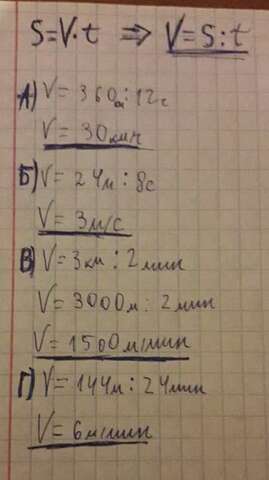 S=V·t ⇒ V=S:t
А) V=360м:12с
V=30км/ч
Б) V=24м:8с
V=3м/с
В) V=3км:2мин
V=3000м:2мин
V=1500м/мин
Г) V=144м:24мин
V=6м/мин